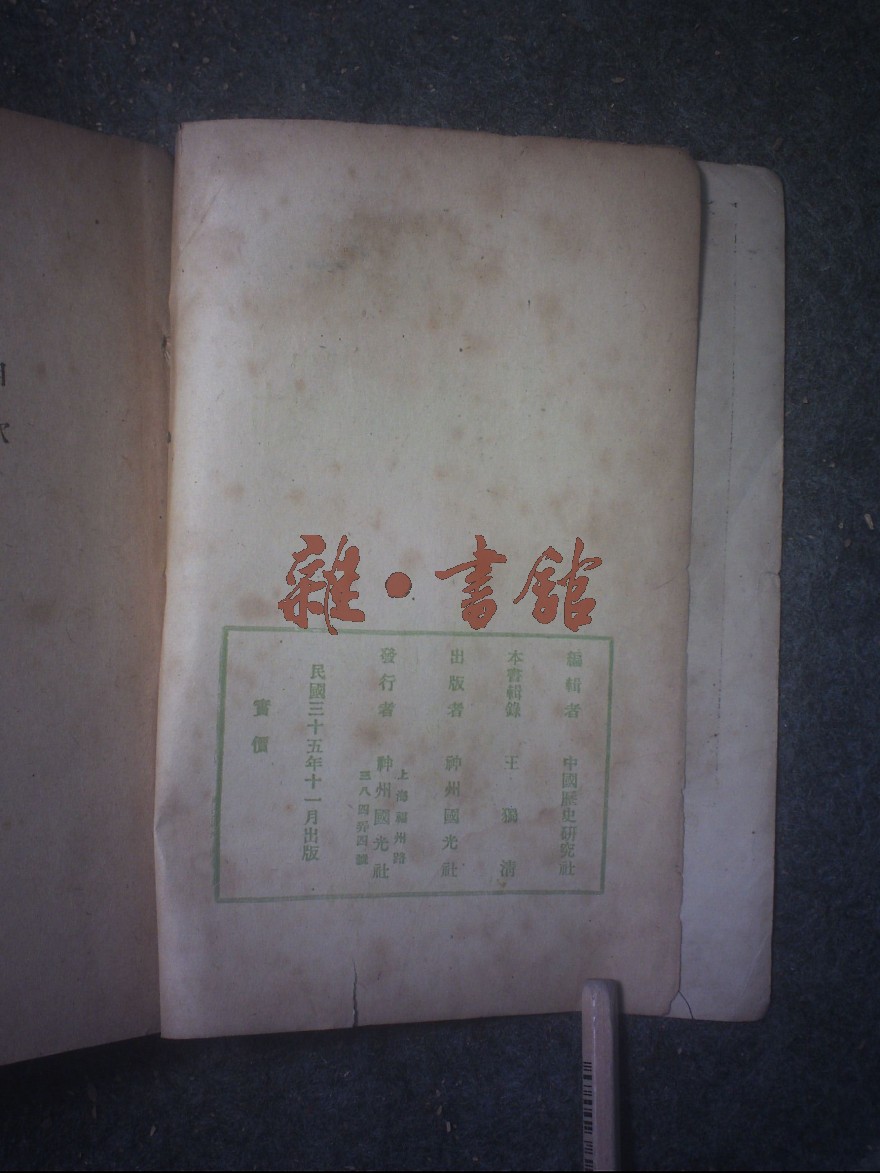 雜・書館
編輯者 中國歷史研究社
本書輯錄 王獨清
出版者 神州國光社
發行者 神州國光社
上海福州路
三八四弄四號
民國三十五年十一月出版
實價